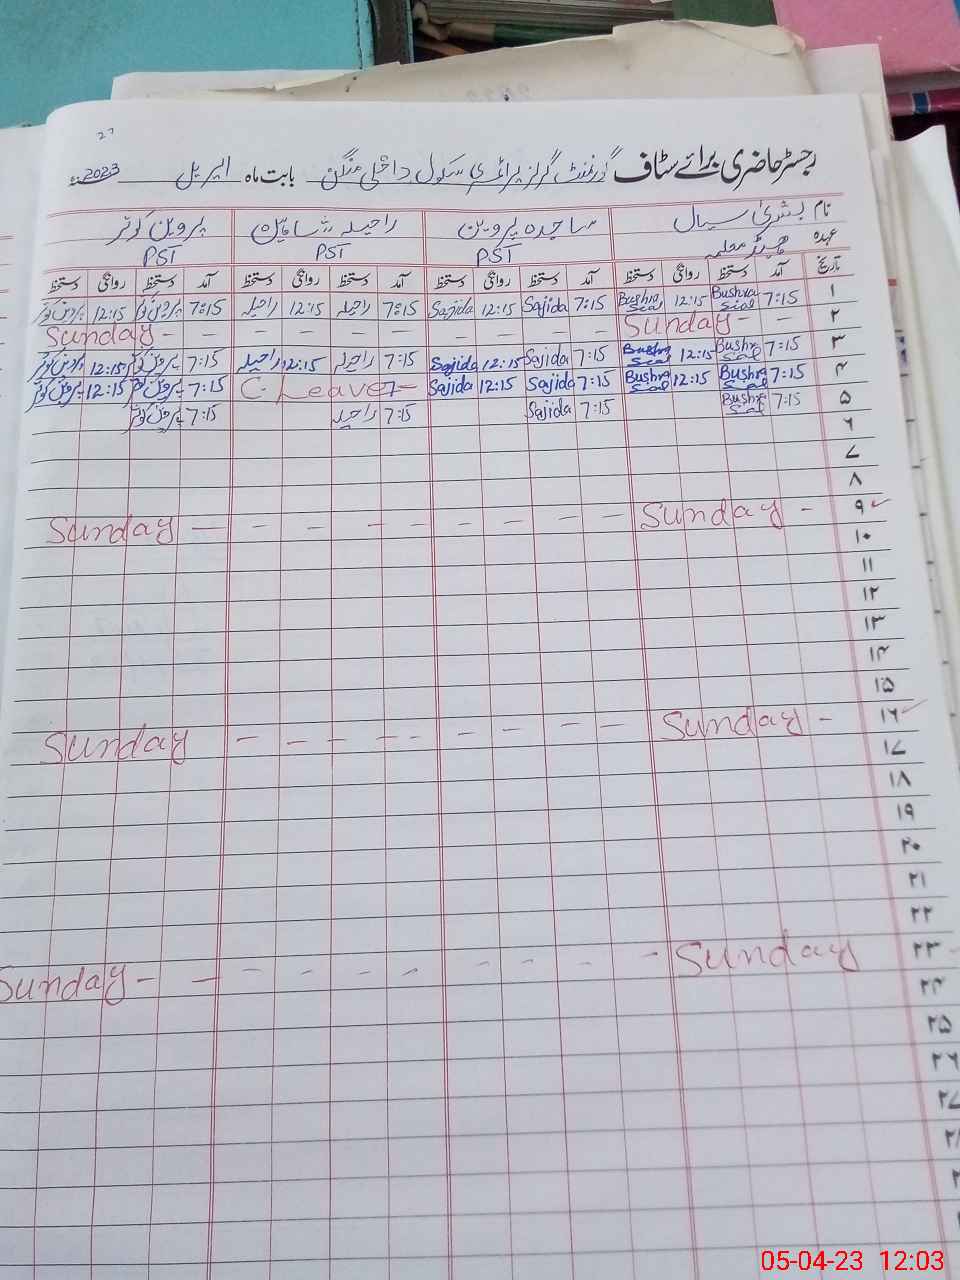 27
رجسٹر حاضری برائے سٹاف گورنمنٹ گرلز پرائمری سکول داخلی منگن بابت ماہ اپریل 2023ء
نام بشریٰ سیال ساجدہ پروین راحیلہ شاہین پروین کوثر
عہدہ ہیڈ معلمہ PST PST PST
تاریخ آمد دستخط روانگی دستخط آمد دستخط روانگی دستخط آمد دستخط روانگی دستخط آمد دستخط روانگی دستخط
۱ 7:15 Bushra Seal 12:15 Bushra Seal 7:15 Sajida 12:15 Sajida 7:15 راحیلہ 12:15 راحیلہ 7:15 پروین کوثر 12:15 پروین کوثر
۲ Sunday - - - - - - - - - - Sunday -
۳ 7:15 Bushra Seal 12:15 Bushra Seal 7:15 Sajida 12:15 Sajida 7:15 راحیلہ 12:15 راحیلہ 7:15 پروین کوثر 12:15 پروین کوثر
۴ 7:15 Bushra Seal 12:15 Bushra Seal 7:15 Sajida 12:15 Sajida C. Leave 7:15 پروین کوثر 12:15 پروین کوثر
۵ 7:15 Bushra Seal 7:15 Sajida 7:15 راحیلہ 7:15 پروین کوثر
۶
۷
۸
۹ Sunday - - - - - - - - - - Sunday
۱۰
۱۱
۱۲
۱۳
۱۴
۱۵
۱۶ Sunday - - - - - - - - - - Sunday
۱۷
۱۸
۱۹
۲۰
۲۱
۲۲
۲۳ Sunday - - - - - - - - - - Sunday
۲۴
۲۵
۲۶
۲۷
05-04-23 12:03